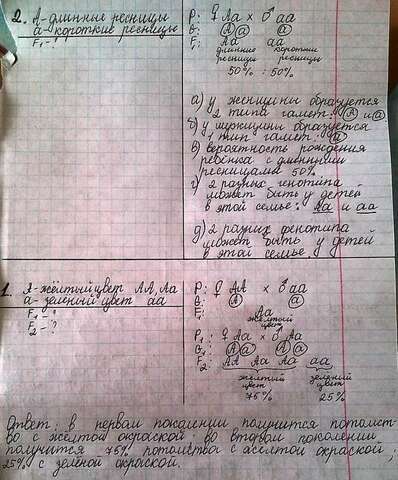 2. А-длинные ресницы
а-короткие ресницы
F₁ - ?
P: ♀ Аа × ♂ аа
G: А а а
F₁ Аа аа
длинные ресницы короткие ресницы
50% : 50%
а) у женщины образуется
2 типа гамет: А и а
б) у мужчины образуется
1 тип гамет: а
в) вероятность рождения
ребёнка с длинными
ресницами 50%
г) 2 разных генотипа
может быть у детей
в этой семье: Аа и аа
д) 2 разных фенотипа
может быть у детей
в этой семье
1. А-жёлтый цвет АА, Аа
а-зелёный цвет аа
F₁ - ?
F₂ - ?
P: ♀ АА × ♂ аа
G: А а
F₁: Аа
жёлтый
цвет
P₁: ♀ Аа × ♂ Аа
G₁: А а А а
F₂: АА Аа Аа аа
жёлтый цвет зелёный цвет
75% 25%
Ответ: в первом поколении получится потомст-
во с жёлтой окраской; во втором поколении
получится 75% потомства с жёлтой окраской;
25% с зелёной окраской.